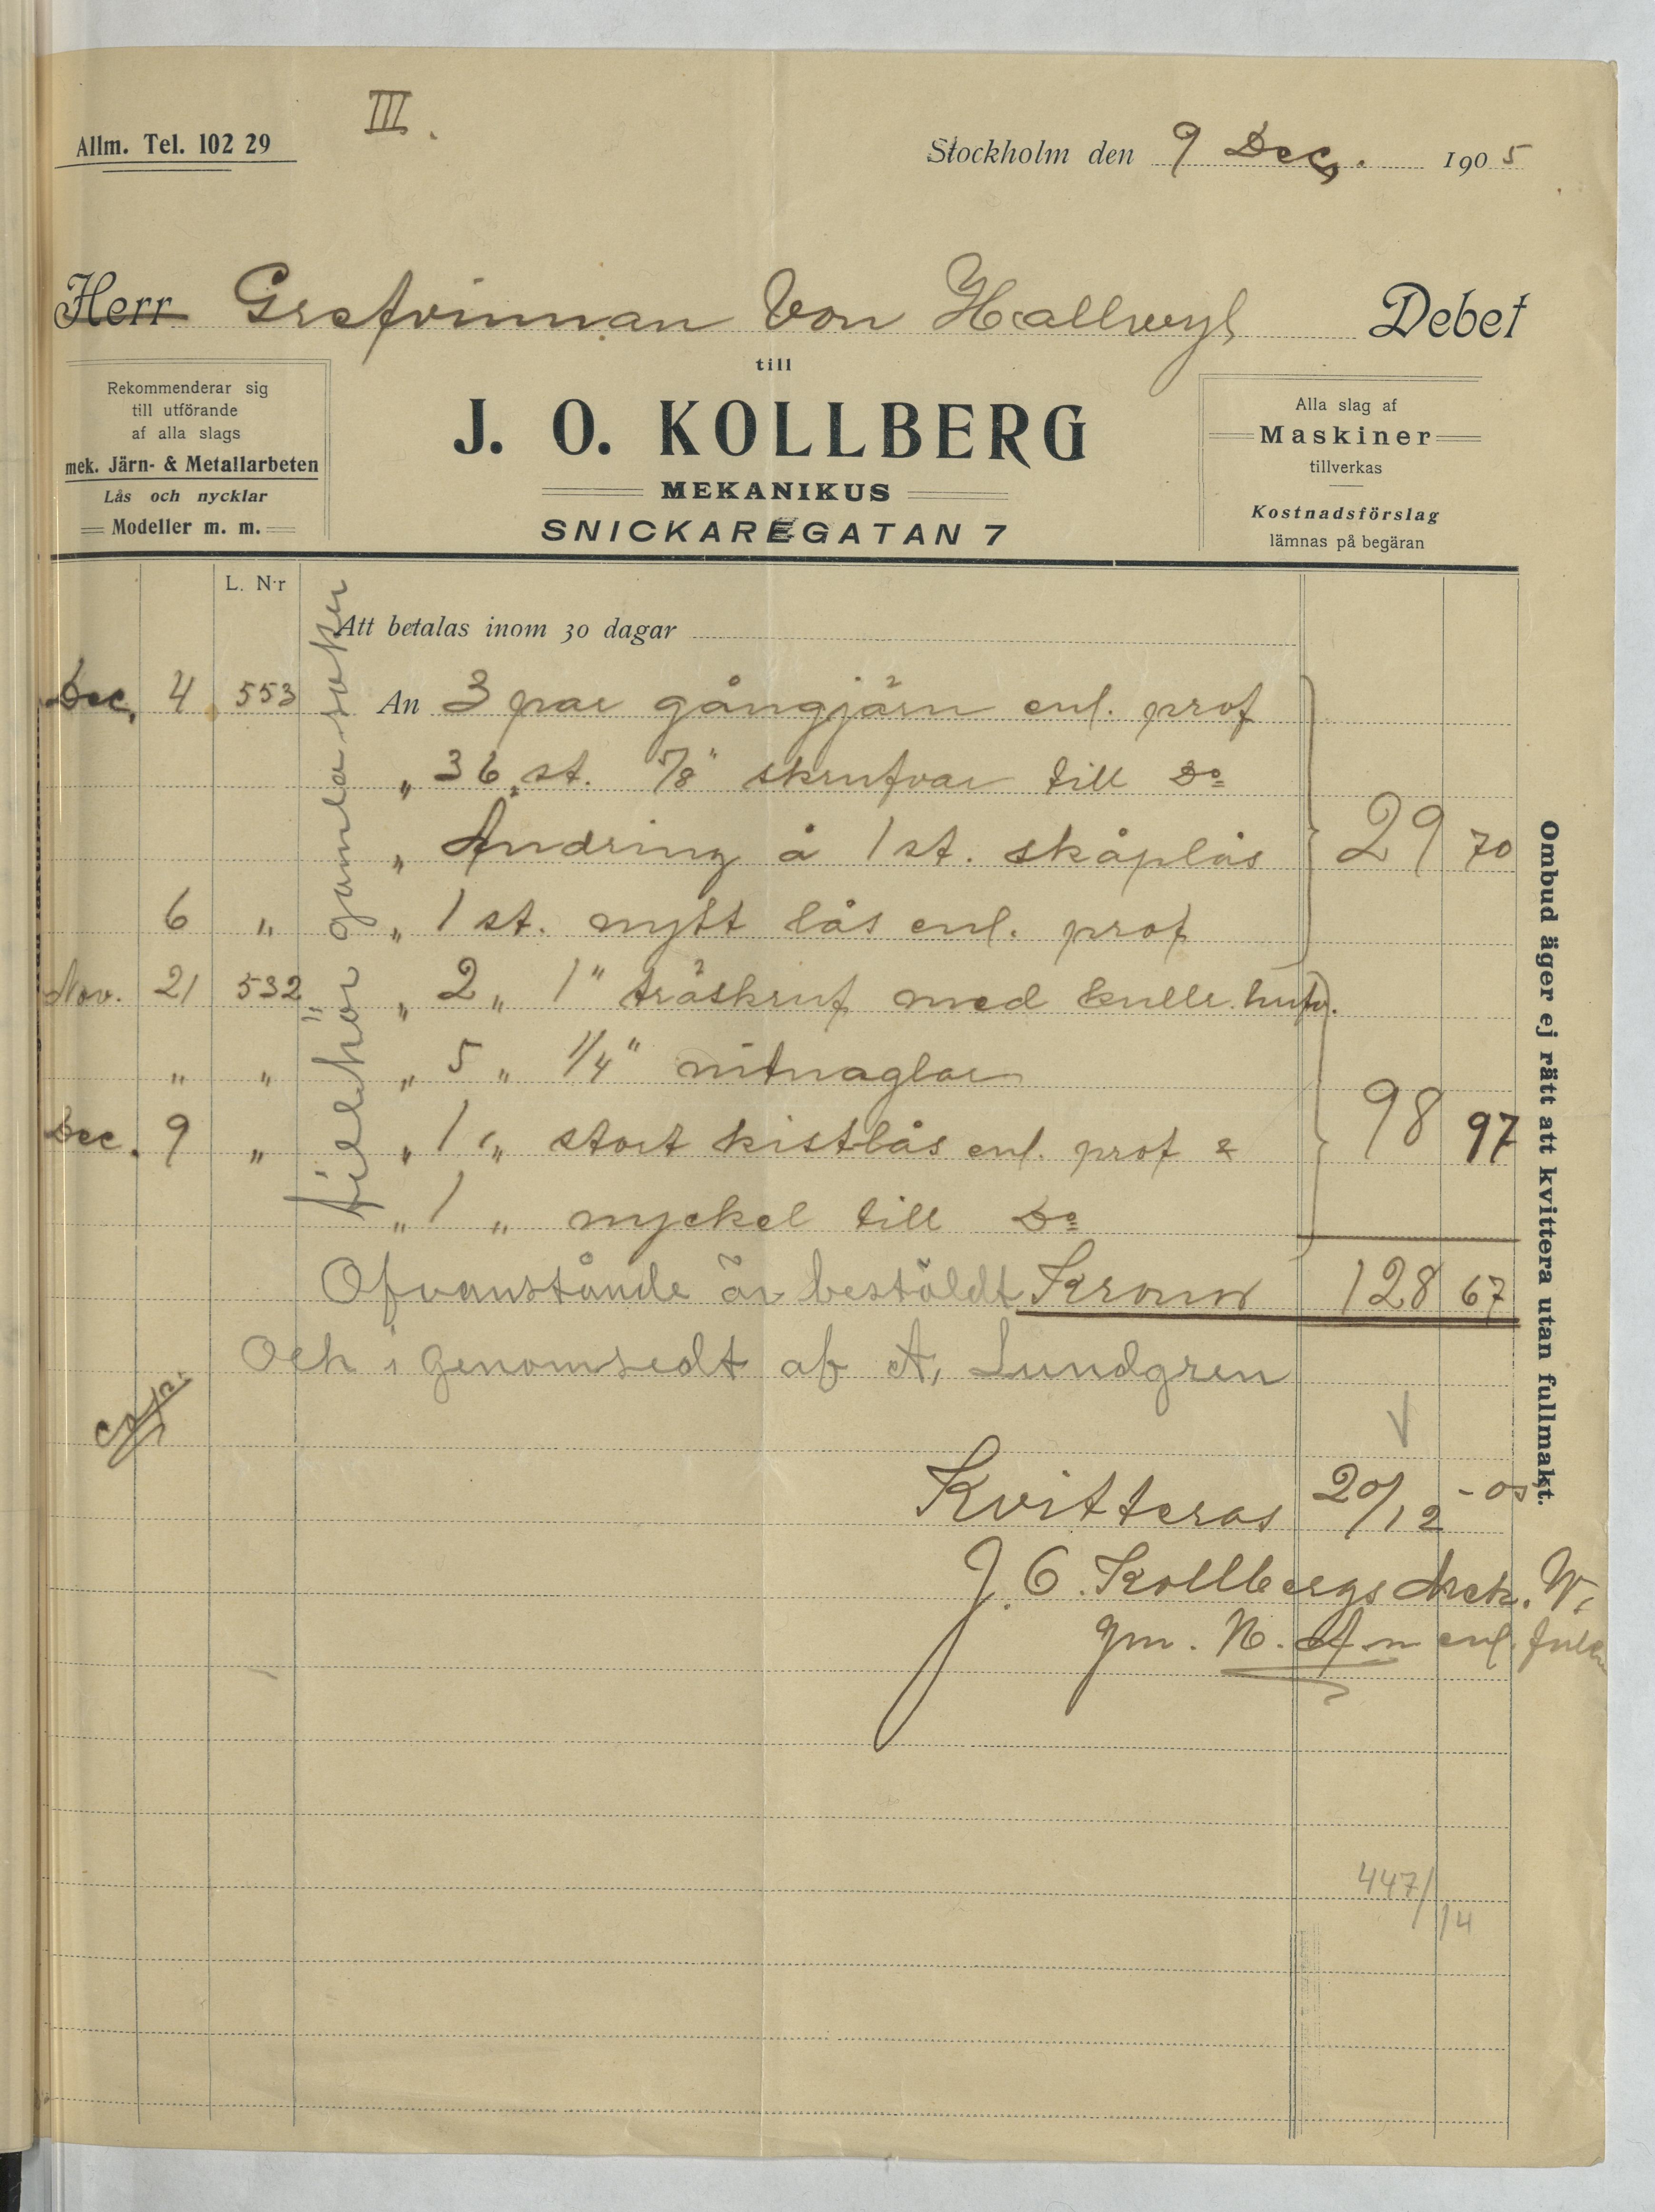 III.
Allm. Tel. 102 29
Stockholm den 9 Dec. 1905
Herr Grefvinnan Von Hallwyl Debet
till
J. O. KOLLBERG
MEKANIKUS
SNICKAREGATAN 7
Rekommenderar sig
till utförande
af alla slags
mek. Järn- & Metallarbeten
Lås och nycklar
Modeller m. m.
Alla slag af
Maskiner
tillverkas
Kostnadsförslag
lämnas på begäran
L. N:r
Att betalas inom 30 dagar
Dec. 4 553 An 3 par gångjärn enl. prof
" 36 st. 7/8" skrufvar till Do
" Ändring å 1 st. skåplås 29 70
6 " " 1 st. nytt lås enl. prof
Nov. 21 532 " 2 " 1" träskruf med kulle. hufv.
" " " 5 " 1/4" nitnaglar
Dec. 9 " " 1 " stort kistlås enl. prof & 98 97
" 1 " nyckel till Do
Kronor 128 67
Ofvanstånde är bestäldt
Och igenomsedt af A. Lundgren
tillhör gamla saker
Kvitteras 20/12 -05
J. O. Kollbergs Mek. W.
gm. enl. fullm
447/14
Ombud äger ej rätt att kvittera utan fullmakt.